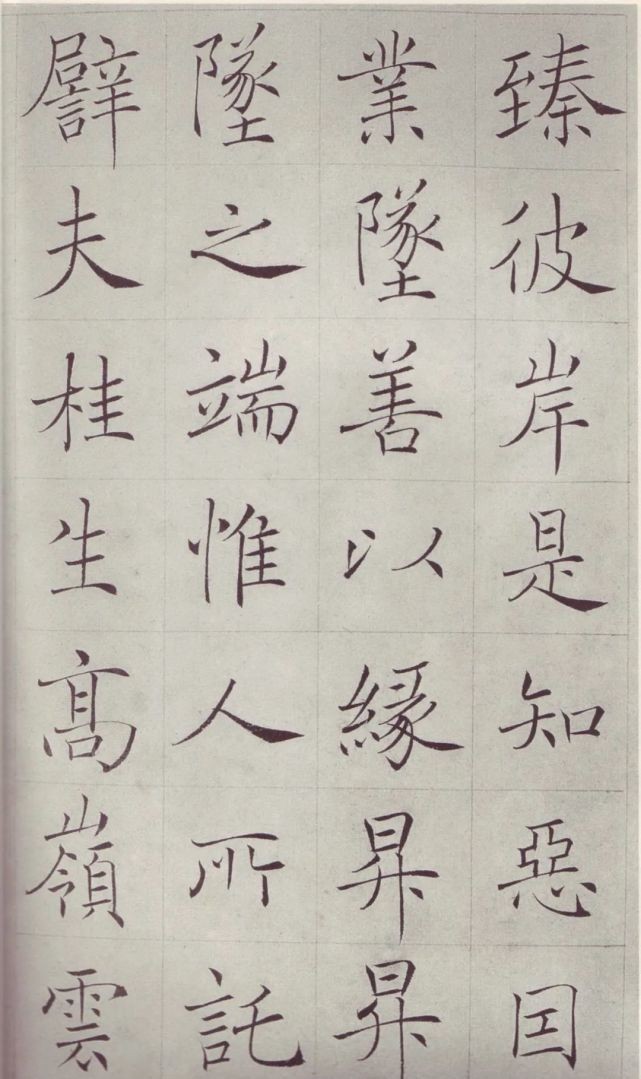 臻彼岸是知惡囙
業墜善以縁昇昇
墜之端惟人所託
譬夫桂生髙嶺雲